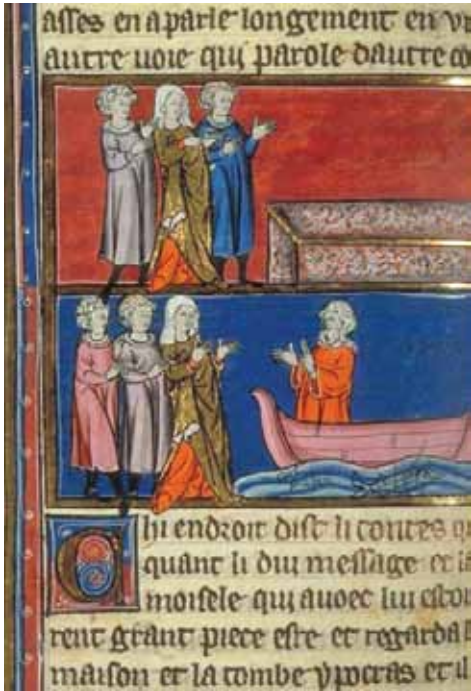 asses en aparle longement en
autre uoie qui parole dautre
Chi endroit dist li contes
quant li dui message et
moisele qui auoec lui
rent grant piece estre et regarda
maison et la tombe ypocras et